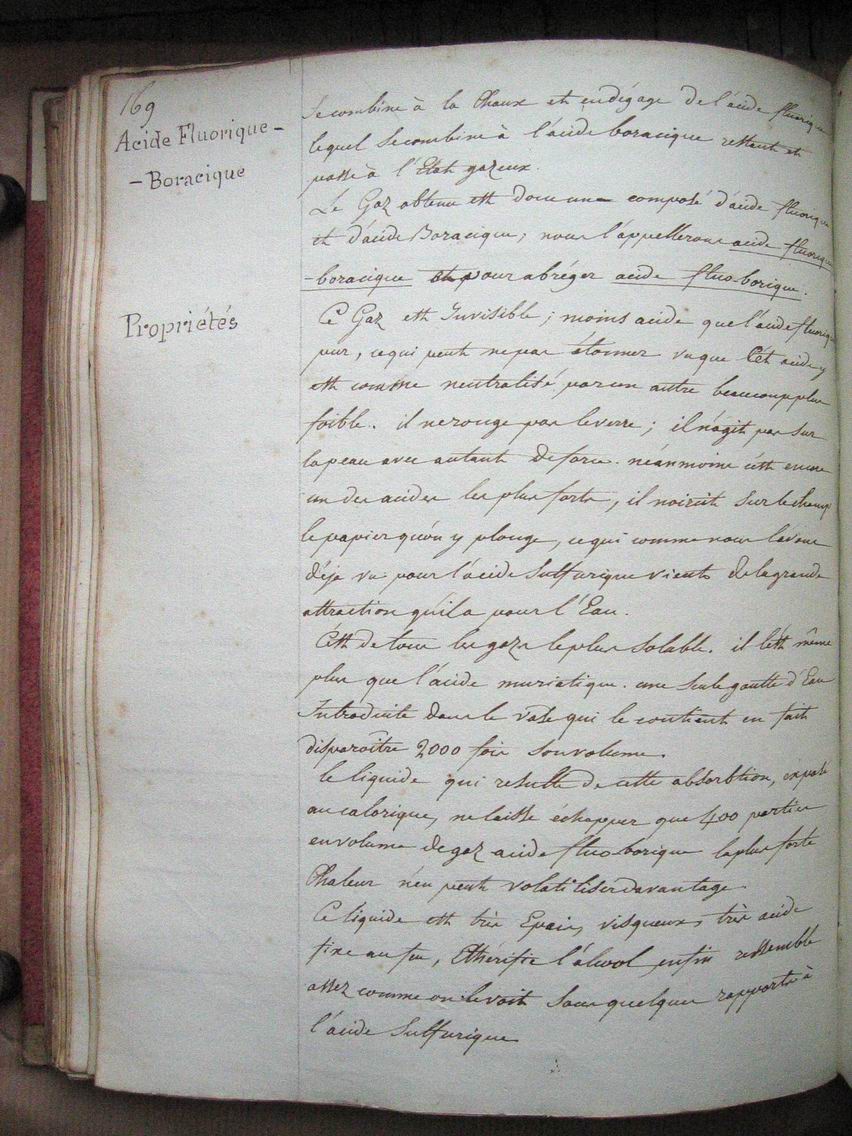 169
Acide Fluorique -
- Boracique
Se combine à la Chaux et en dégage de l'acide fluorique
lequel se combine à l'acide boracique restant et
passe à l'Etat gazeux.
Le Gaz obtenu est donc une composé d'acide fluorique
et d'acide Boracique; nous l'appellerons acide fluorique
-boracique et pour abréger acide fluo-borique.
Propriétés
Ce Gaz est Invisible; moins acide que l'acide fluorique
pur, ce qui peut ne pas étonner vu que Cet acide y
est comme neutralisé par un autre beaucoup plus
foible. il ne ronge pas le verre; il n'agit pas sur
la peau avec autant de force. néanmoins c'est encore
un des acides les plus forts, il noircit sur le champ
le papier qu'on y plonge, ce qui comme nous l'avons
déja vu pour l'acide Sulfurique vient de la grande
attraction qu'il a pour l'Eau.
C'est de tous les gazs le plus Soluble. il l'est même
plus que l'acide muriatique. une seule goutte d'Eau
Introduite dans le vase qui le contient en fait
disparoître 2000 fois son volume.
le liquide qui resulte de cette absorbtion, exposé
au calorique, ne laisse échapper que 400 parties
en volume de gaz acide fluo borique la plus forte
Chaleur n'en peut volatiliser davantage.
Ce liquide est très Epais, visqueux, très acide
fixe au feu, Ethérifie l'alcool enfin ressemble
assez comme on le voit sous quelques rapports à
l'acide Sulfurique